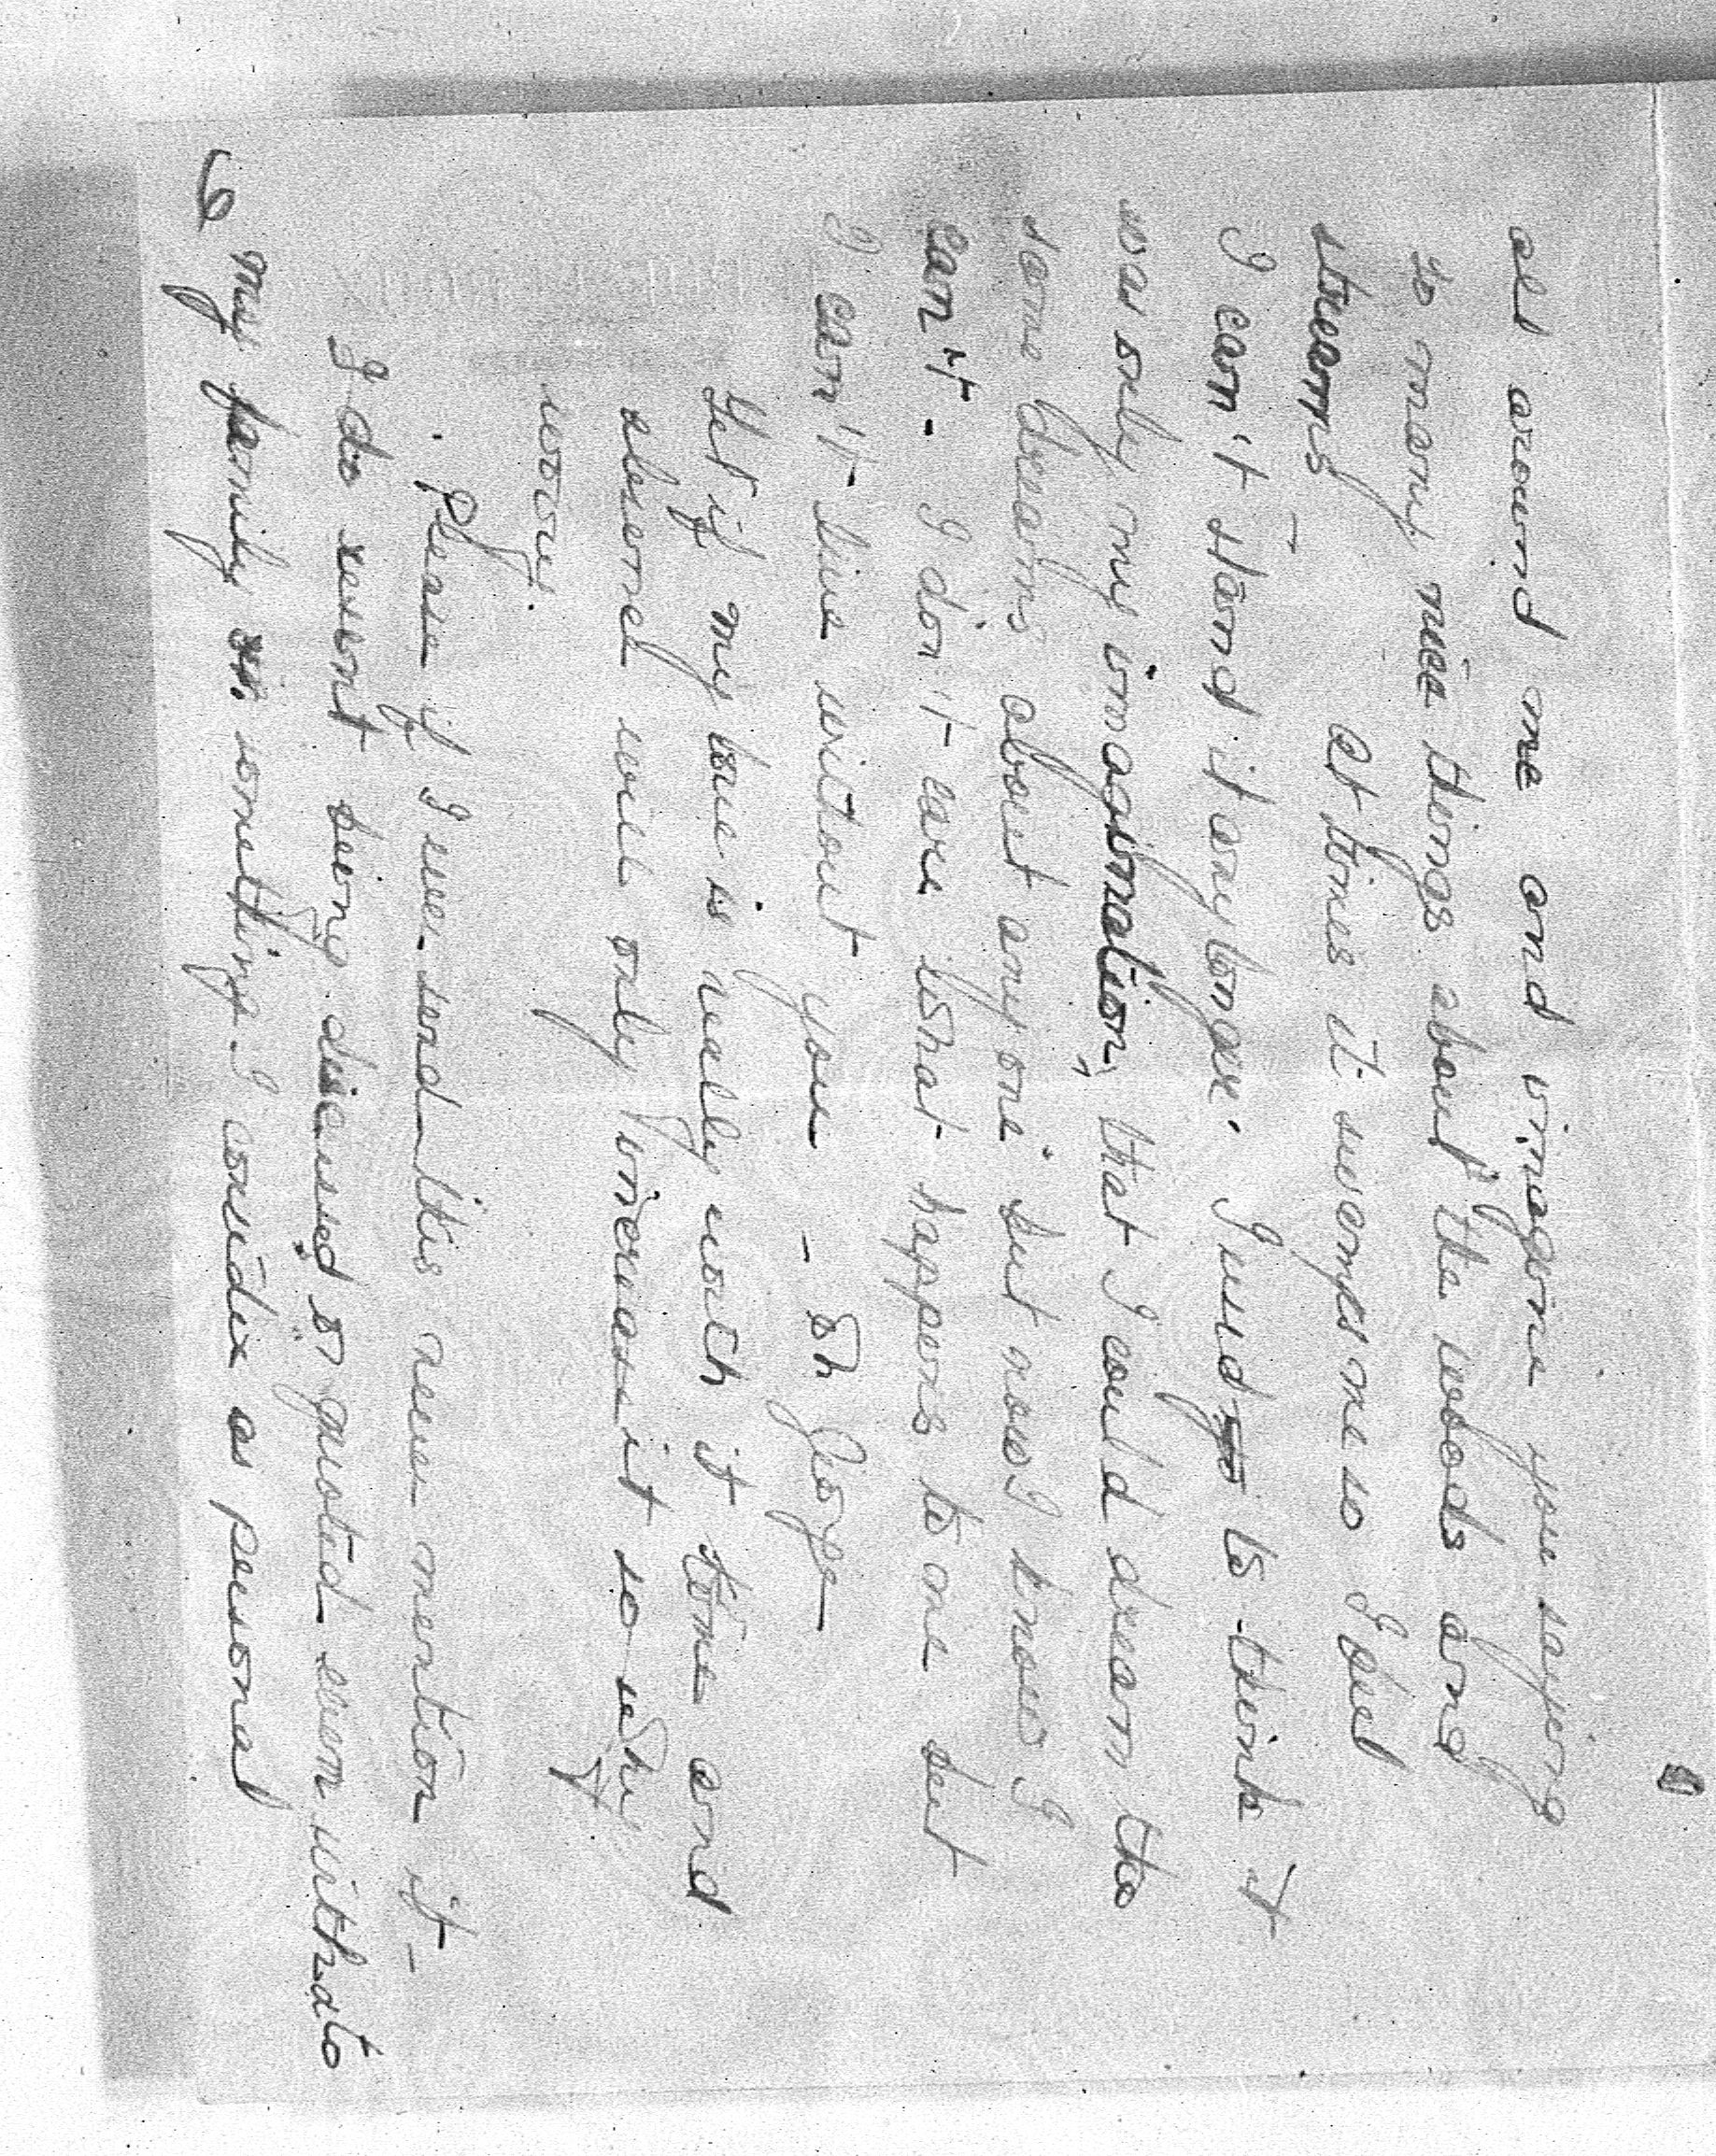 all around me and imagine you saying
so many nice things about the woods and
streems at times it swamps me so I feel
I can't stand it any longer. I used to to think it
was only my imagination, that I could dream the
same dreams about any one but now I know I
can't. I don't care what happens to me but
I can't live without you - Oh
Yet if my love is really worth it time and
silence will only increase it so why
worry.
Please if I ever send this never mention it -
I do resent being discussed or quoted even
6 my family is something I consider as personal